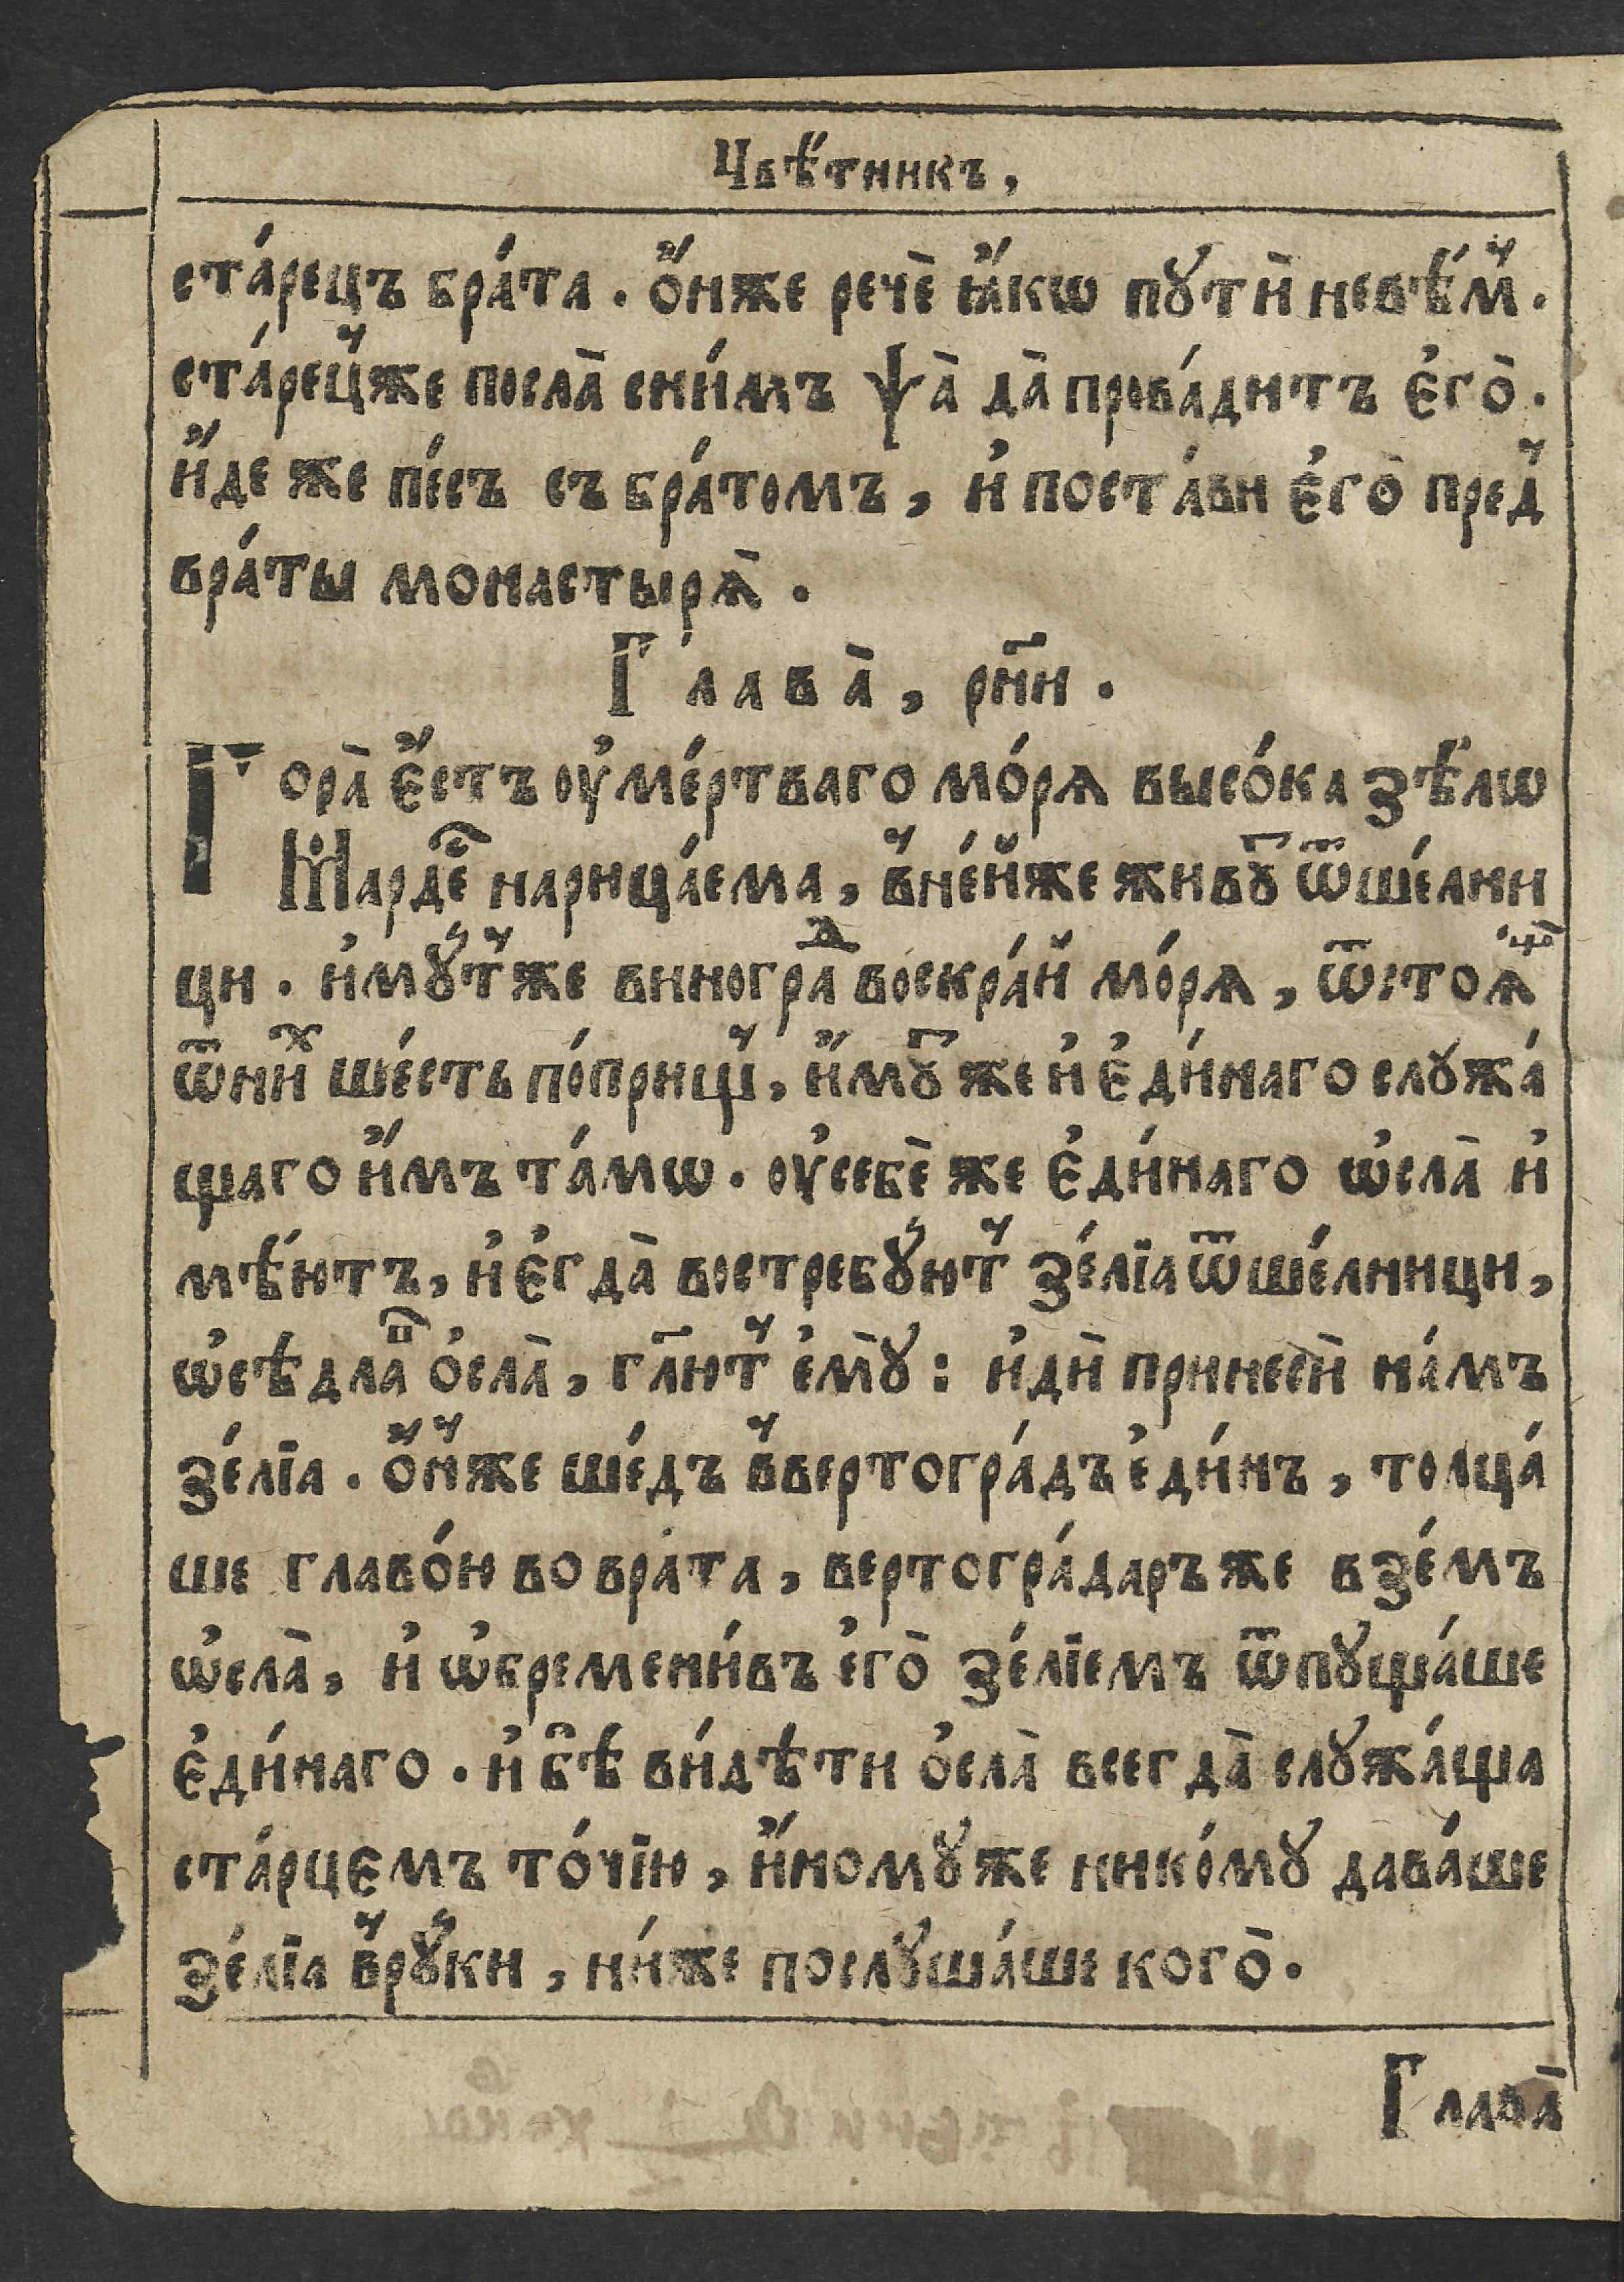 Цвѣ́тникъ,
ста́рецъ бра́та . ѻ҆́нже речѐ ꙗ҆́кѡ пꙋтѝ невѣ́м̾ .
ста́рец̾же посла̀ сни́мъ ѱа̀ да̀ прова́дитъ є҆го̀ .
и҆́де же пе́съ съ бра́томъ , и҆ поста́ви є҆го̀ пред̾
вра́ты монастырѧ̀ .
Глава̀ , рн҃и .
Гора̀ є҆́стъ ᲂу҆ ме́ртваго мо́рѧ высо́ка ѕѣ́лѡ
Марде҇ нарица́ема , в̾не́йже живꙋ҇ ѿше́лни
ци . и҆мꙋ́т̾же виногра̀ⷣ воскра́й мо́рѧ , ѿстоѧ̀ⷳ
ѿни́ⷯ ше́сть по́прищ̾ , и҆́мꙋ҇ же и҆ є҆ди́наго слꙋжа́
щаго и҆́мъ та́мѡ . ᲂу҆себѐ же є҆ди́наго ѡ҆сла̀ и҆
мѣ́ютъ , и҆ є҆гда̀ востребꙋ́ют̾ зе́лїа ѿше́лници ,
ѡ҆сѣдлаⷡ҇ ѻ҆сла̀ , гл҃ют̾ є҆мꙋ̀ : и҆дѝ принесѝ на́мъ
зе́лїа . ѻ҆́н̾же ше́дъ в̾вертогра́дъ є҆ди́нъ , толца́
ше главо́ю во врата , вертогра́даръ же взе́мъ
ѡ҆сла̀ , и҆ ѡ҆бремени́въ є҆го̀ зе́лїемъ ѿпꙋща́ше
є҆ди́наго . и҆ бѣ̀ ви́дѣти ѻ҆сла̀ всегда̀ слꙋжа́ща
ста́рцемъ то́чїю , и҆́номꙋ же нико́мꙋ дава́ше
зе́лїа в̾рꙋ́ки , ни́же послꙋша́ше кого̀ .
Глава̀